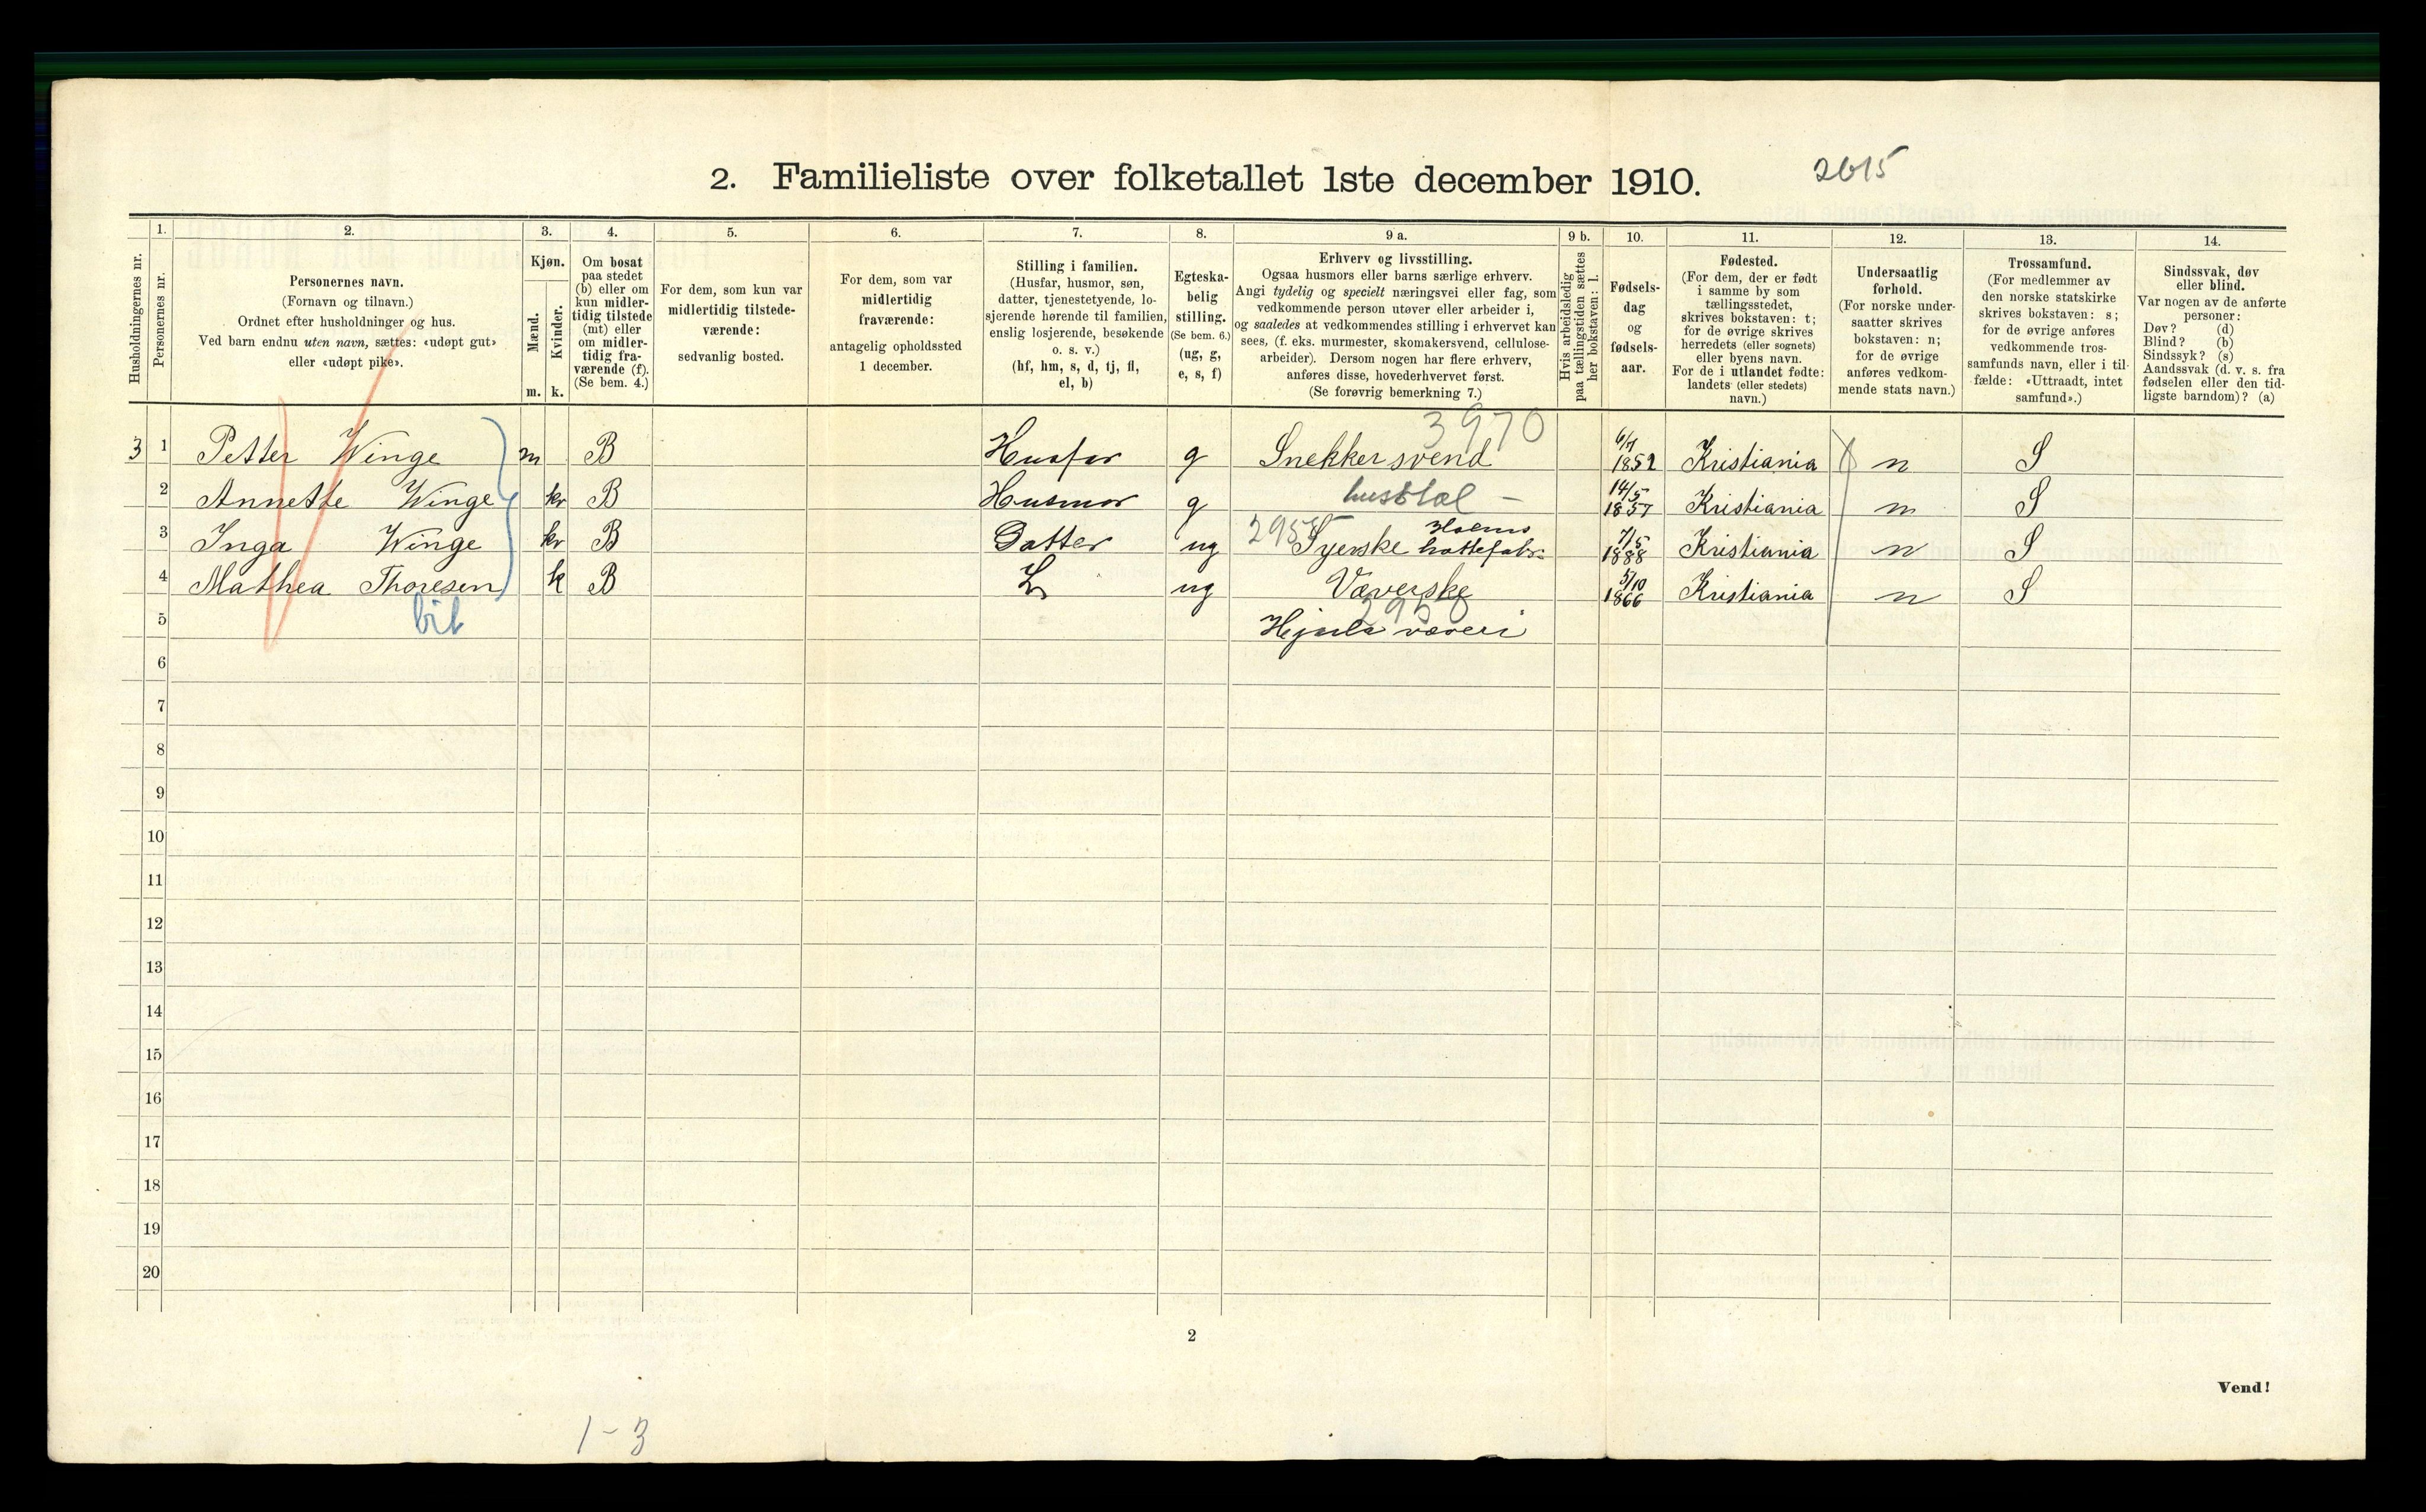 2. Familieliste over folketallet 1ste december 1910.
2615
Husholdningernes nr.
1.
Personernes nr.
2.
Personernes navn.
(Fornavn og tilnavn.)
Ordnet efter husholdninger og hus.
Ved barn endnu uten navn, sættes: «udøpt gut»
eller «udøpt pike».
3.
Kjøn.
Mænd.
Kvinder.
m. k.
4.
Om bosat
paa stedet
(b) eller om
kun midler-
tidig tilstede
(mt) eller
om midler-
tidig fra-
værende (f).
(Se bem. 4.)
5.
For dem, som kun var
midlertidig tilstede-
værende:
sedvanlig bosted.
6.
For dem, som var
midlertidig
fraværende:
antagelig opholdssted
1 december.
7.
Stilling i familien.
(Husfar, husmor, søn,
datter, tjenestetyende, lo-
sjerende hørende til familien,
enslig losjerende, besøkende
o. s. v.)
(hf, hm, s, d, tj, fl,
el, b)
8.
Egteska-
belig
stilling.
(Se bem. 6.)
(ug, g,
e, s, f)
9 a.
Erhverv og livsstilling.
Ogsaa husmors eller barns særlige erhverv.
Angi tydelig og specielt næringsvei eller fag, som
vedkommende person utøver eller arbeider i,
og saaledes at vedkommendes stilling i erhvervet kan
sees, (f. eks. murmester, skomakersvend, cellulose-
arbeider). Dersom nogen har flere erhverv,
anføres disse, hovederhvervet først.
(Se forøvrig bemerkning 7.)
9 b.
Hvis arbeidsledig
paa tællingstiden sættes
her bokstaven: l.
10.
Fødsels-
dag
og
fødsels-
aar.
11.
Fødested.
(For dem, der er født
i samme by som
tællingsstedet,
skrives bokstaven: t;
for de øvrige skrives
herredets (eller sognets)
eller byens navn.
For de i utlandet fødte:
landets (eller stedets)
navn.)
12.
Undersaatlig
forhold.
(For norske under-
saatter skrives
bokstaven: n;
for de øvrige
anføres vedkom-
mende stats navn.)
13.
Trossamfund.
(For medlemmer av
den norske statskirke
skrives bokstaven: s;
for de øvrige anføres
vedkommende tros-
samfunds navn, eller i til-
fælde: «Uttraadt, intet
samfund».)
14.
Sindssvak, døv
eller blind.
Var nogen av de anførte
personer:
Døv? (d)
Blind? (b)
Sindssyk? (s)
Aandssvak (d. v. s. fra
fødselen eller den tid-
ligste barndom)? (a)
3970
3 1 Petter Winge m B Husfar g Snekker svend 1852 Kristiania n S
2 Annette Winge kv B Husmor g husstel – 14/5 1857 Kristiania n S
3 Inga Winge kv B Datter ug Syerske Holms hattefabr. 7/5 1888 Kristiania n S
4 Mathea Thoresen k B L ug Væverske 5/10 1866 Kristiania n S
2950
5 Hjula væveri
6
7
8
9
10
11
12
13
14
15
16
17
18
19
20
2
Vend!
1-3